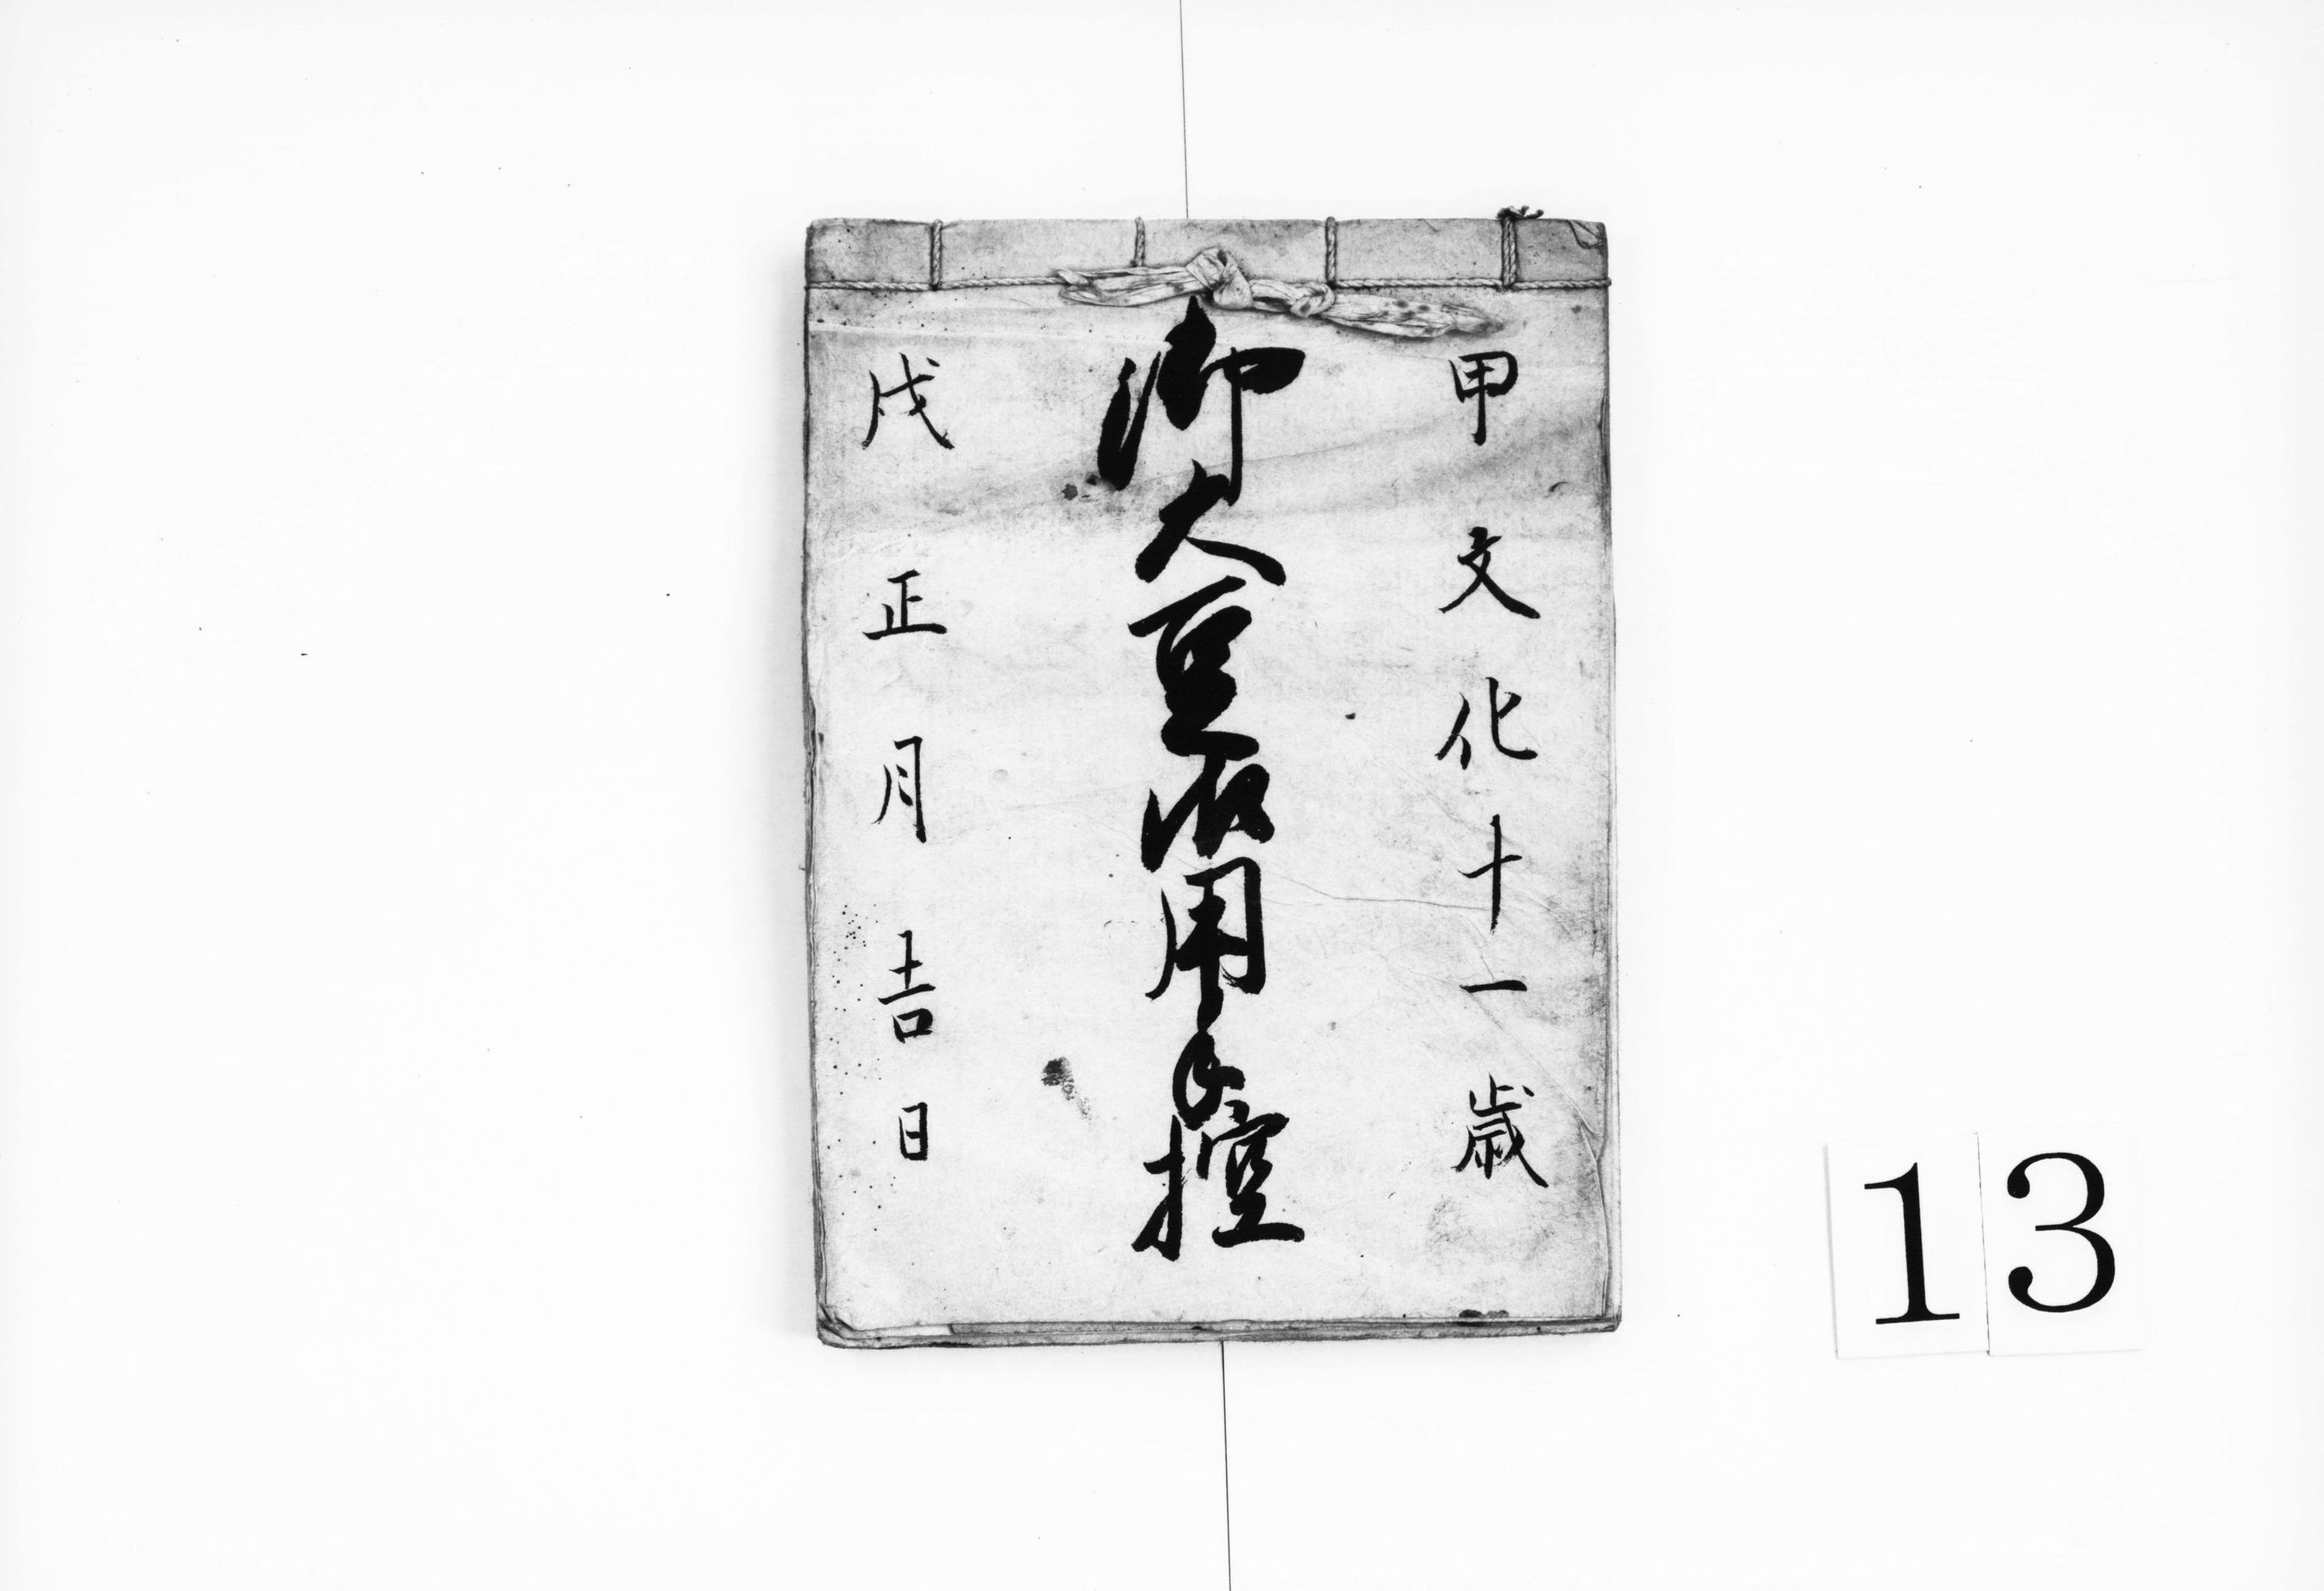 甲文化十一歳
御大豆御用手控
戌正月吉日
13